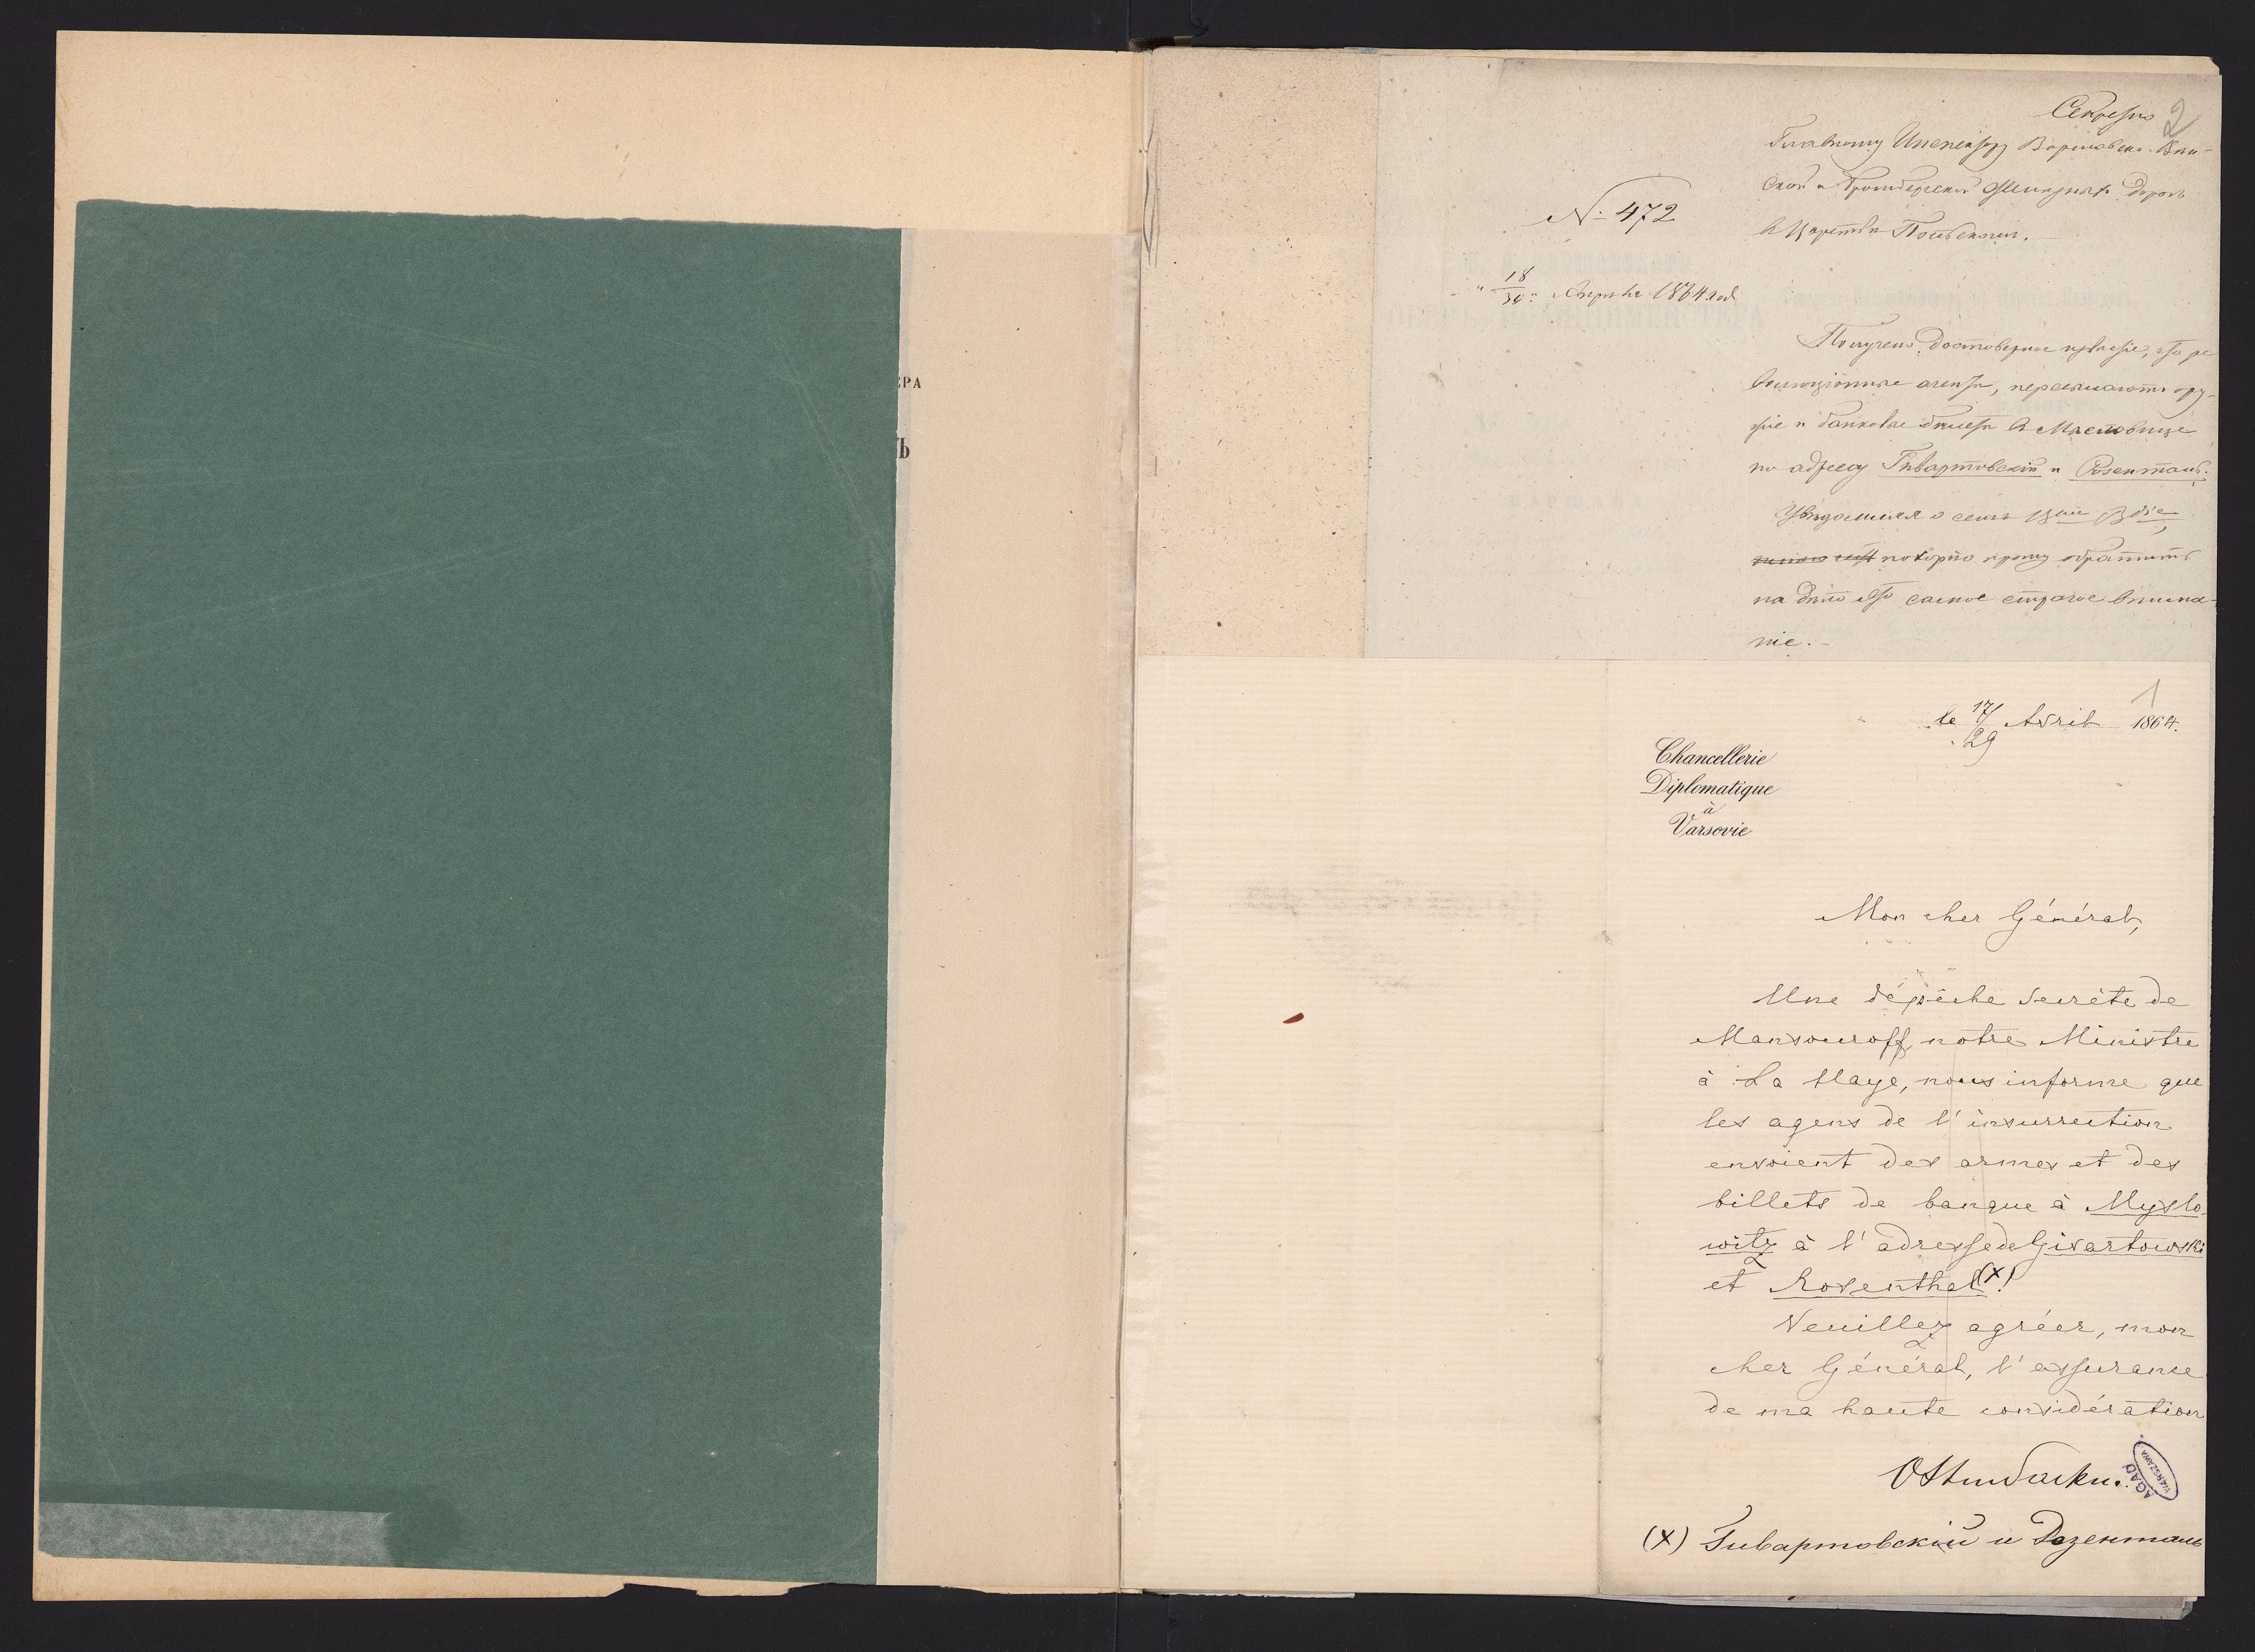 ЕРА
Ъ
2
Секретно
Главному Инспектору Варшавско-Вен-
ской и Бромбергской Желѣзныхъ дорогъ
въ Царствѣ Польскомъ.
№ 472
" 18/30 " Апрѣля 1864 год
Получено достоверное извѣстіе, что ре
волюціонные агенты, пересылаютъ ору-
жіе и банковые билеты въ Мысловице
по адресу Гивартовскій и Розенталь.
Увѣдомляя о семъ
покорно прошу обратить
на дѣло это самое строгое внима-
ніе.-
1
le 17/29 Avril 1864.
Chancellerie
Diplomatique
à
Varsovie
Mon cher Général,
Une dépêche secrète de
Mansouroff, notre Ministre
à La Haye, nous informe que
les agens de l'insurrection
envoient des armes et des
billets de banque à Myslo-
witz à l'adresse de Givartowski
et Rosenthal (x).
Veuillez agréer, mon
cher Général, l'assurance
de ma haute considération
AGAD
WARSZAWA
(x) Гивартовскій и Розенталь